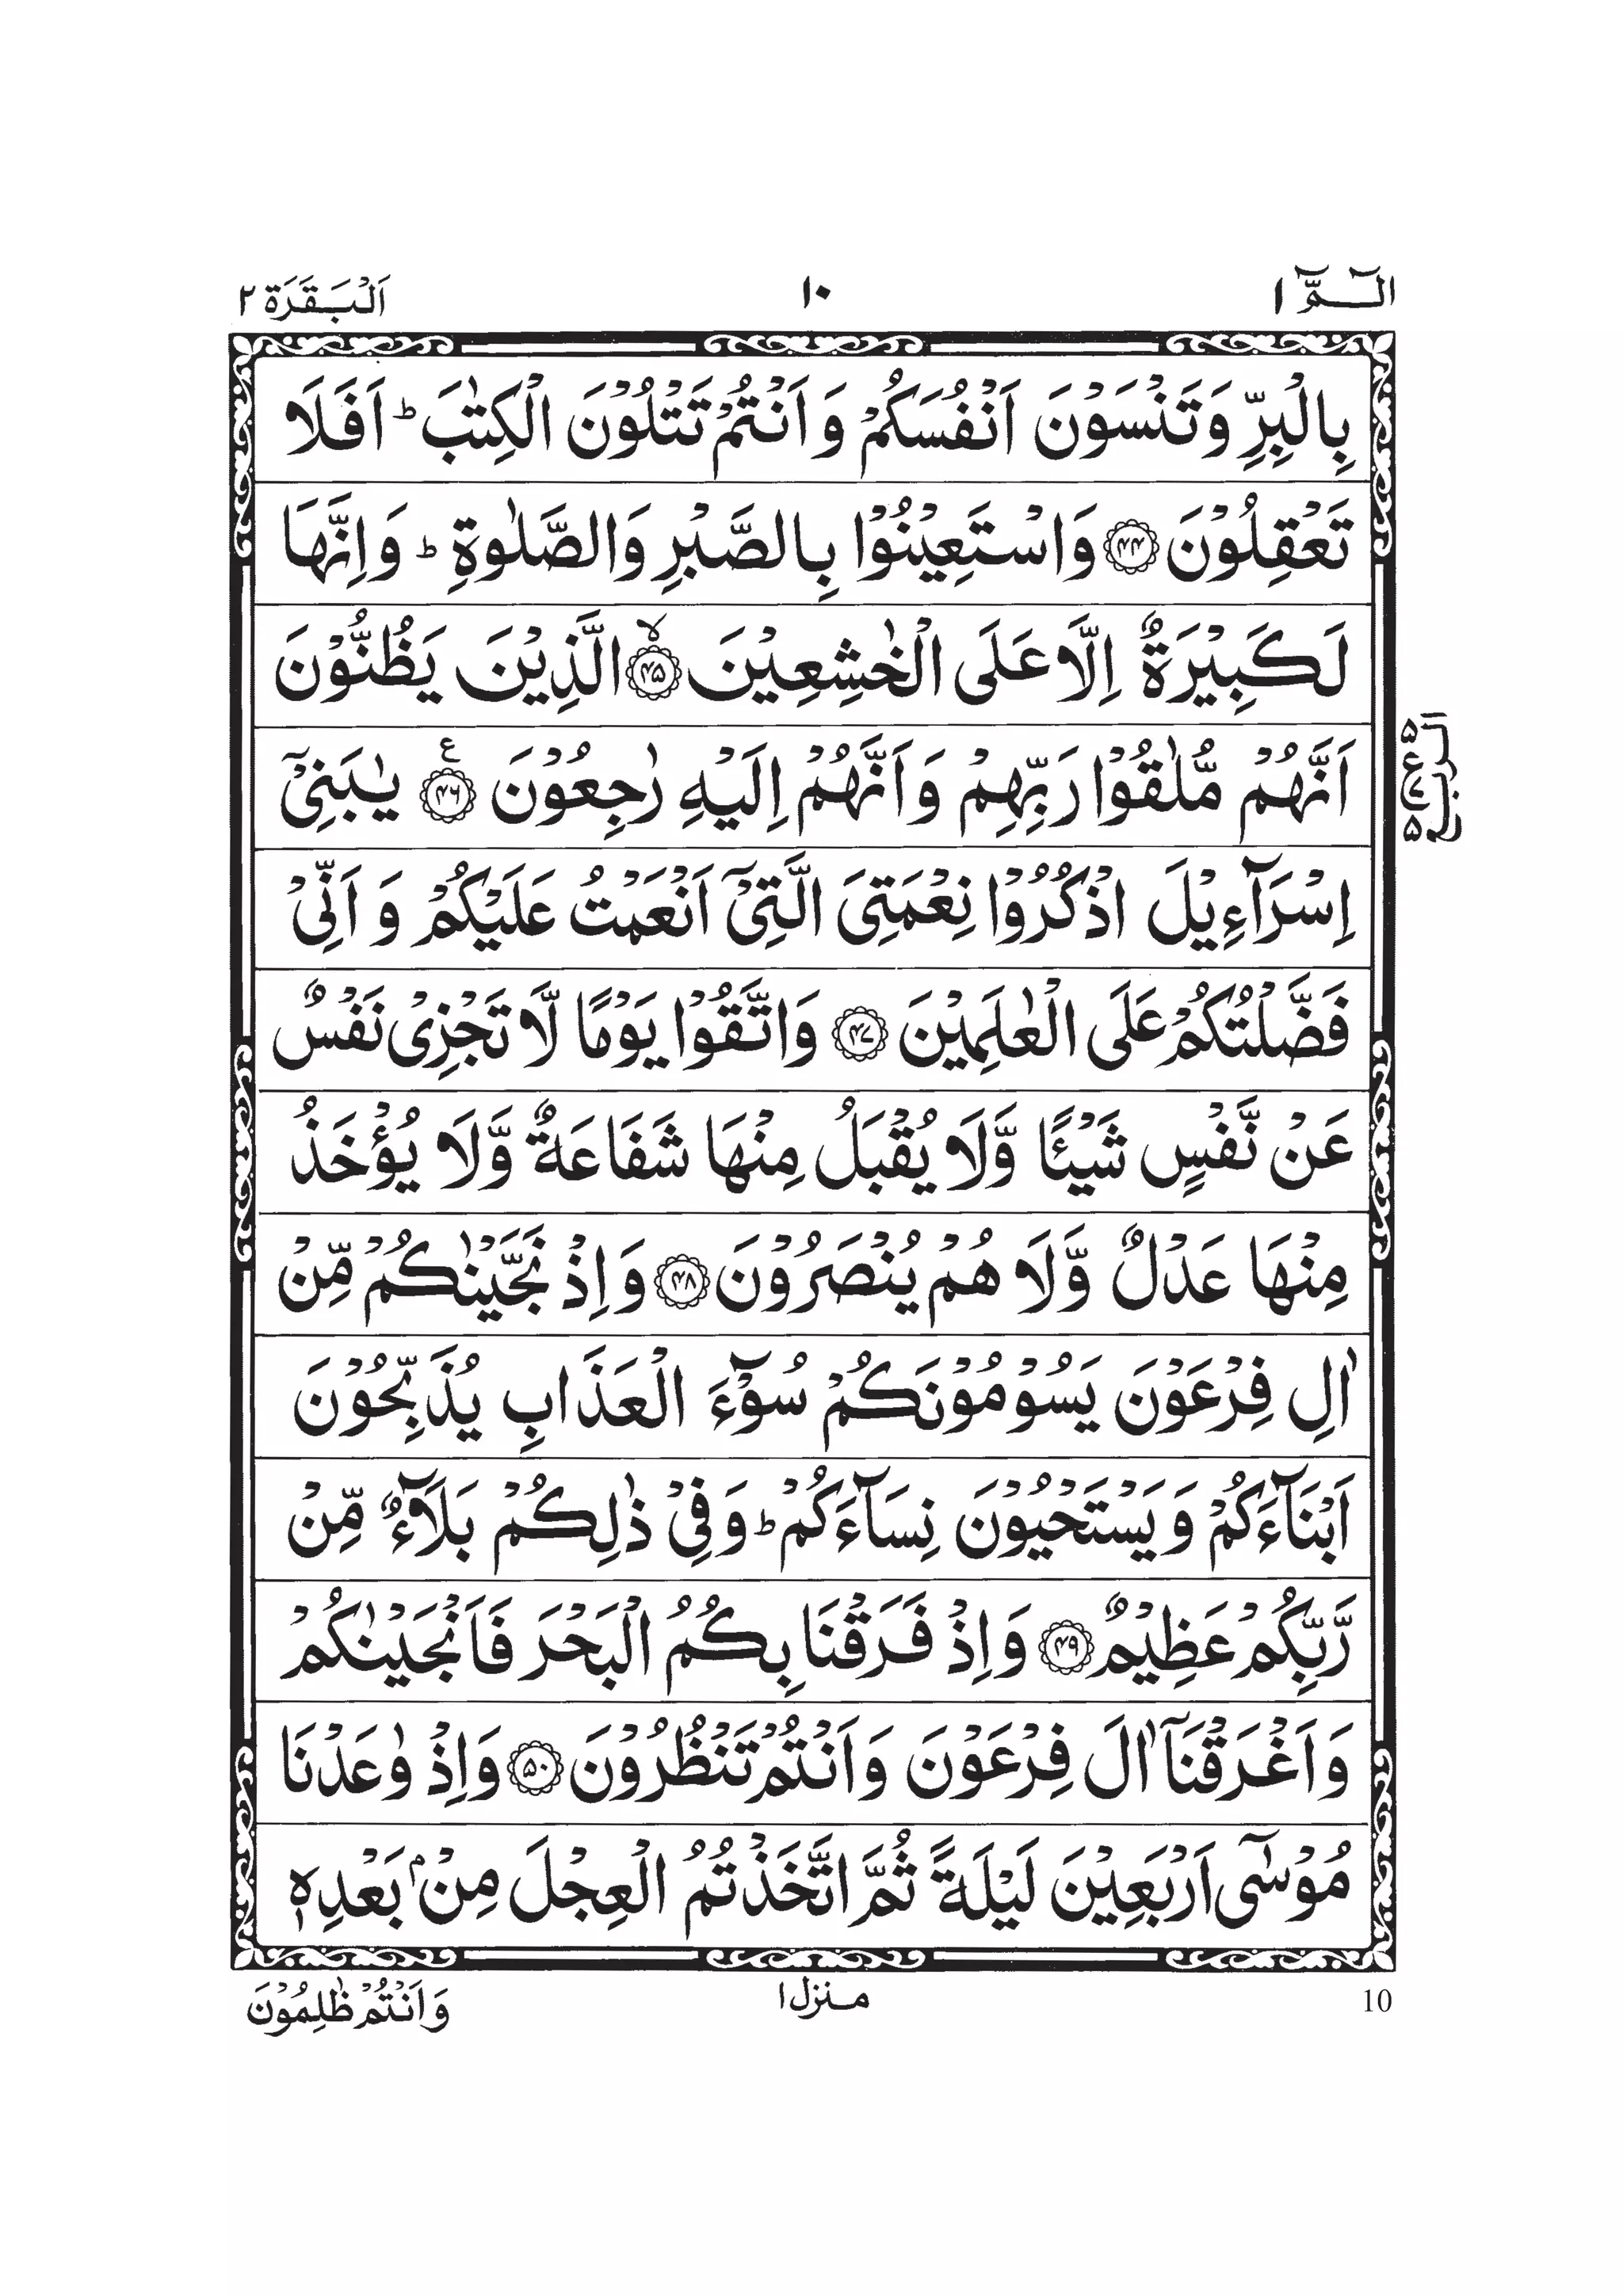 الٓـمّٓ ١ ١٠ اَلْبَـقَرَة ٢
بِالْبِرِّ وَتَنْسَوْنَ اَنْفُسَكُمْ وَاَنْتُمْ تَتْلُوْنَ الْكِتٰبَ ؕ اَفَلَا
تَعْقِلُوْنَ ﴿۴۴﴾ وَاسْتَعِيْنُوْا بِالصَّبْرِ وَالصَّلٰوةِ ؕ وَاِنَّهَا
لَكَبِيْرَةٌ اِلَّا عَلَى الْخٰشِعِيْنَ ﴿۴۵﴾ۙ الَّذِيْنَ يَظُنُّوْنَ
اَنَّهُمْ مُّلٰقُوْا رَبِّهِمْ وَاَنَّهُمْ اِلَيْهِ رٰجِعُوْنَ ﴿۴۶﴾ع يٰبَنِيْٓ
اِسْرَآءِيْلَ اذْكُرُوْا نِعْمَتِيَ الَّتِيْٓ اَنْعَمْتُ عَلَيْكُمْ وَاَنِّيْ
فَضَّلْتُكُمْ عَلَى الْعٰلَمِيْنَ ﴿۴۷﴾ وَاتَّقُوْا يَوْمًا لَّا تَجْزِيْ نَفْسٌ
عَنْ نَّفْسٍ شَيْـًٔا وَّلَا يُقْبَلُ مِنْهَا شَفَاعَةٌ وَّلَا يُؤْخَذُ
مِنْهَا عَدْلٌ وَّلَا هُمْ يُنْصَرُوْنَ ﴿۴۸﴾ وَاِذْ نَجَّيْنٰكُمْ مِّنْ
اٰلِ فِرْعَوْنَ يَسُوْمُوْنَكُمْ سُوْٓءَ الْعَذَابِ يُذَبِّحُوْنَ
اَبْنَآءَكُمْ وَيَسْتَحْيُوْنَ نِسَآءَكُمْ ؕ وَفِيْ ذٰلِكُمْ بَلَآءٌ مِّنْ
رَّبِّكُمْ عَظِيْمٌ ﴿۴۹﴾ وَاِذْ فَرَقْنَا بِكُمُ الْبَحْرَ فَاَنْجَيْنٰكُمْ
وَاَغْرَقْنَآ اٰلَ فِرْعَوْنَ وَاَنْتُمْ تَنْظُرُوْنَ ﴿۵۰﴾ وَاِذْ وٰعَدْنَا
مُوْسٰٓى اَرْبَعِيْنَ لَيْلَةً ثُمَّ اتَّخَذْتُمُ الْعِجْلَ مِنْۢ بَعْدِهٖ
10 مـنزل ١ وَاَنْتُمْ ظٰلِمُوْنَ